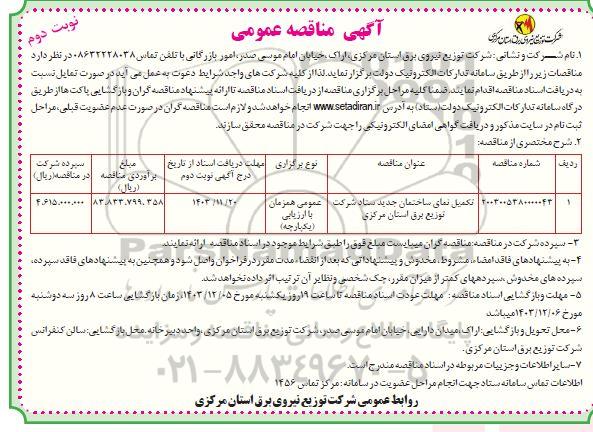 آگهی مناقصه عمومی
نوبت دوم
شرکت توزیع نیروی برق استان مرکزی
۱. نام شرکت و نشانی: شرکت توزیع نیروی برق استان مرکزی، اراک، خیابان امام موسی صدر، امور بازرگانی با تلفن تماس ۰۸۶۳۲۲۲۸۰۳۸ در نظر دارد
مناقصات زیر را از طریق سامانه تدارکات الکترونیک دولت برگزار نماید. لذا از کلیه شرکت های واجد شرایط دعوت به عمل می آید در صورت تمایل نسبت
به دریافت اسناد مناقصه اقدام نمایند. ضمنا کلیه مراحل برگزاری مناقصه از دریافت اسناد مناقصه تا ارائه پیشنهاد مناقصه گران و بازگشایی پاکت ها از طریق
درگاه سامانه تدارکات الکترونیک دولت (ستاد) به آدرس www.setadiran.ir انجام خواهد شد و لازم است مناقصه گران در صورت عدم عضویت قبلی، مراحل
ثبت نام در سایت مذکور و دریافت گواهی امضای الکترونیکی را جهت شرکت در مناقصه محقق سازند.
۲. شرح مختصری از مناقصه:
ردیف شماره مناقصه عنوان مناقصه نوع برگزاری مهلت دریافت اسناد از تاریخ درج آگهی نوبت دوم مبلغ برآوردی مناقصه (ریال) سپرده شرکت در مناقصه (ریال)
۱ ۲۰۰۳۰۰۵۳۸۰۰۰۰۰۴۳ تکمیل نمای ساختمان جدید ستاد شرکت توزیع برق استان مرکزی عمومی همزمان با ارزیابی (یکپارچه) ۱۴۰۳/۱۱/۲۰ ۸۳.۸۳۳.۷۹۹.۳۵۸ ۴.۶۱۵.۰۰۰.۰۰۰
۳- سپرده شرکت در مناقصه: مناقصه گران میبایست مبلغ فوق را طبق شرایط موجود در اسناد مناقصه ارائه نمایند.
۴- به پیشنهادهای فاقد امضاء، مشروط، مخدوش و پیشنهاداتی که بعد از انقضاء مدت مقرر در فراخوان واصل شود و همچنین به پیشنهادهای فاقد سپرده،
سپرده های مخدوش، سپرده های کمتر از میزان مقرر، چک شخصی و نظایر آن ترتیب اثر داده نخواهد شد.
۵- مهلت و بازگشایی اسناد مناقصه: مهلت عودت اسناد مناقصه تا ساعت ۱۹ روز یکشنبه مورخ ۱۴۰۳/۱۲/۰۵، زمان بازگشایی ساعت ۸ روز سه دوشنبه
مورخ ۱۴۰۳/۱۲/۰۶ میباشد
۶- محل تحویل و بازگشایی: اراک، میدان دارایی، خیابان امام موسی صدر، شرکت توزیع برق استان مرکزی، واحد دبیرخانه. محل بازگشایی: سالن کنفرانس
شرکت توزیع برق استان مرکزی.
۷- سایر اطلاعات و جزییات مربوطه در اسناد مناقصه مندرج است.
اطلاعات تماس سامانه ستاد جهت انجام مراحل عضویت در سامانه: مرکز تماس ۱۴۵۶
روابط عمومی شرکت توزیع نیروی برق استان مرکزی
۰۲۱-۸۸۳۴۹۶۷۰-۵